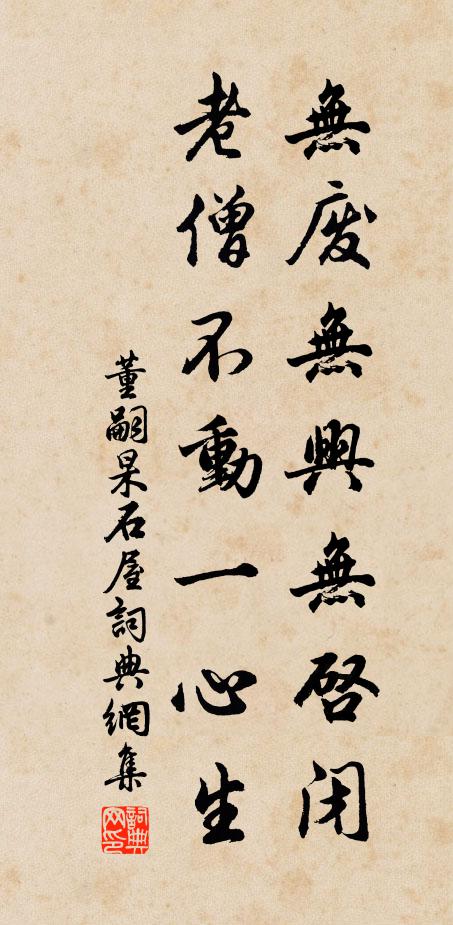 無廢無興無啓閉
老僧不動一心生
董嗣杲石屋詞典網集
詞典网印